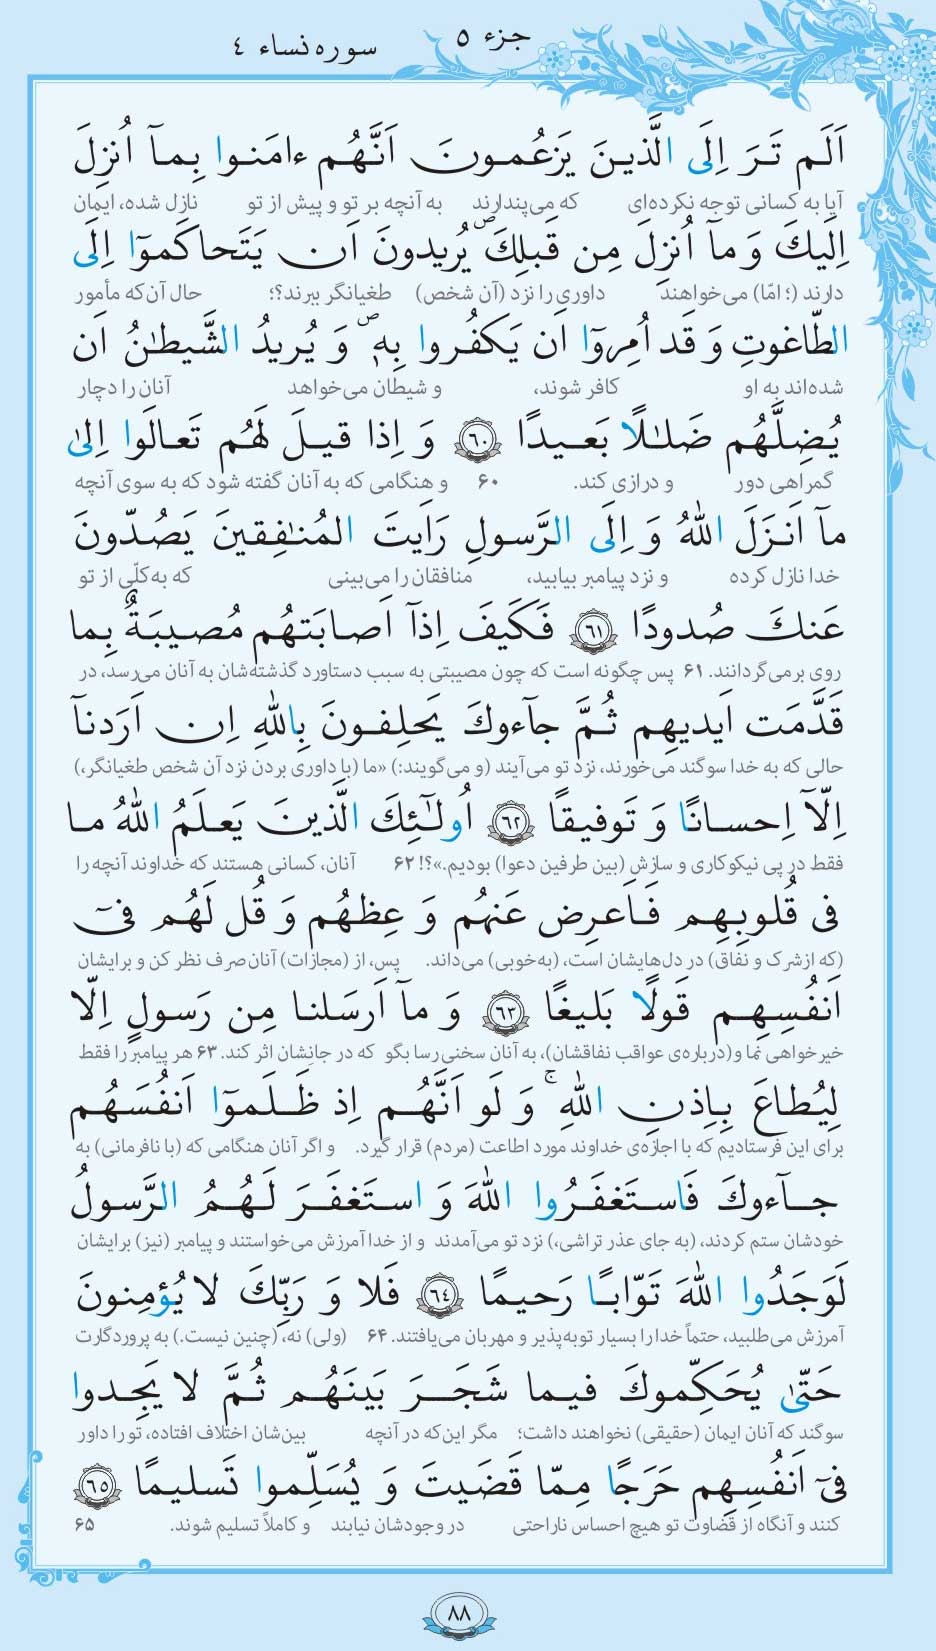 جزء ۵
سوره نساء ۴
اَلَم تَرَ اِلَى الَّذينَ يَزعُمونَ اَنَّهُم ءامَنوا بِمآ اُنزِلَ
آیا به کسانی توجه نکرده‌ای که می‌پندارند به آنچه بر تو و پیش از تو نازل شده، ایمان
اِلَيكَ وَ مآ اُنزِلَ مِن قَبلِكَ ۖ يُريدونَ اَن يَتَحاكَموٓا اِلَى
دارند (؛ امّا) می‌خواهند داوری را نزد (آن شخص) طغیانگر ببرند؟؛ حال آن‌که مأمور
الطّاغوتِ وَ قَد اُمِروٓا اَن يَكفُروا بِهٖ ۖ وَ يُريدُ الشَّيطٰنُ اَن
شده‌اند به او کافر شوند، و شیطان می‌خواهد آنان را دچار
يُضِلَّهُم ضَلٰلًا بَعيدًا ۶۰ وَ اِذا قيلَ لَهُم تَعالَوا اِلىٰ
گمراهی دور و درازی کند. ۶۰ و هنگامی که به آنان گفته شود که به سوی آنچه
مآ اَنزَلَ اللهُ وَ اِلَى الرَّسولِ رَاَيتَ المُنٰفِقينَ يَصُدّونَ
خدا نازل کرده و نزد پیامبر بیایید، منافقان را می‌بینی که به‌کلّی از تو
عَنكَ صُدودًا ۶۱ فَكَيفَ اِذآ اَصابَتهُم مُصيبَةٌ بِما
روی برمی‌گردانند. ۶۱ پس چگونه است که چون مصیبتی به سبب دستاورد گذشته‌شان به آنان می‌رسد، در
قَدَّمَت اَيديهِم ثُمَّ جآءوكَ يَحلِفونَ بِاللهِ اِن اَرَدنآ
حالی که به خدا سوگند می‌خورند، نزد تو می‌آیند (و می‌گویند:) «ما (با داوری بردن نزد آن شخص طغیانگر،)
اِلّآ اِحسانًا وَ تَوفيقًا ۶۲ اُولٰٓئِكَ الَّذينَ يَعلَمُ اللهُ ما
فقط در پی نیکوکاری و سازش (بین طرفین دعوا) بودیم.»؟! ۶۲ آنان، کسانی هستند که خداوند آنچه را
فى قُلوبِهِم فَاَعرِض عَنهُم وَ عِظهُم وَ قُل لَهُم فىٓ
(که ازشرک و نفاق) در دل‌هایشان است، (به‌خوبی) می‌داند. پس، از (مجازات) آنان صرف نظر کن و برایشان
اَنفُسِهِم قَولًا بَليغًا ۶۳ وَ مآ اَرسَلنا مِن رَسولٍ اِلّا
خیرخواهی نما و(درباره‌ی عواقب نفاقشان)، به آنان سخنی رسا بگو که در جانِشان اثر کند. ۶۳ هر پیامبر را فقط
لِيُطاعَ بِاِذنِ اللهِ ۚ وَ لَو اَنَّهُم اِذ ظَلَموٓا اَنفُسَهُم
برای این فرستادیم که با اجازه‌ی خداوند مورد اطاعت (مردم) قرار گیرد. و اگر آنان هنگامی که (با نافرمانی) به
جآءوكَ فَاستَغفَرُوا اللهَ وَ استَغفَرَ لَهُمُ الرَّسولُ
خودشان ستم کردند، (به جای عذر تراشی،) نزد تو می‌آمدند و از خدا آمرزش می‌خواستند و پیامبر (نیز) برایشان
لَوَجَدُوا اللهَ تَوّابًا رَحيمًا ۶۴ فَلا وَ رَبِّكَ لا يُؤمِنونَ
آمرزش می‌طلبید، حتماً خدا را بسیار توبه‌پذیر و مهربان می‌یافتند. ۶۴ (ولی) نه، (چنین نیست.) به پروردگارت
حَتّىٰ يُحَكِّموكَ فيما شَجَرَ بَينَهُم ثُمَّ لا يَجِدوا
سوگند که آنان ایمان (حقیقی) نخواهند داشت؛ مگر این‌که در آنچه بین‌شان اختلاف افتاده، تو را داور
فىٓ اَنفُسِهِم حَرَجًا مِمّا قَضَيتَ وَ يُسَلِّموا تَسليمًا ۶۵
کنند و آنگاه از قضاوت تو هیچ احساس ناراحتی در وجودشان نیابند و کاملاً تسلیم شوند. ۶۵
۸۸